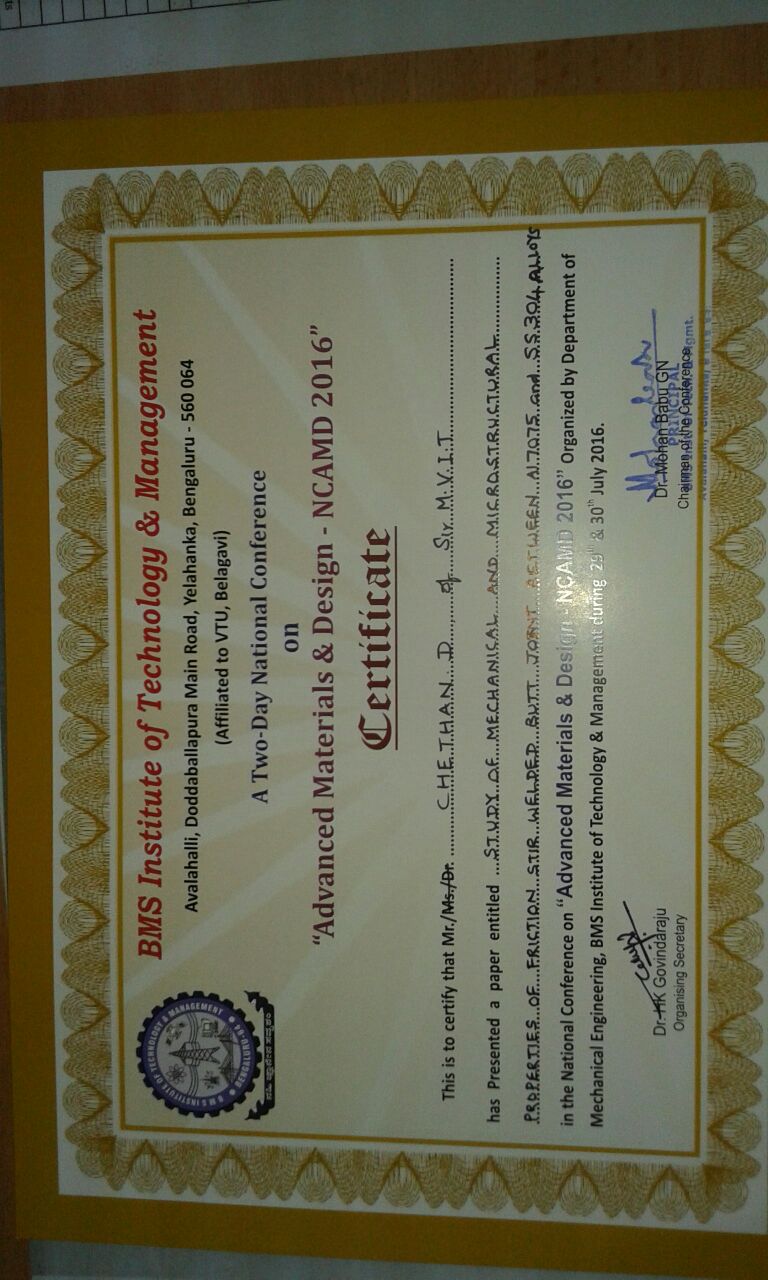 BMS Institute of Technology & Management
Avalahalli, Doddaballapura Main Road, Yelahanka, Bengaluru - 560 064
(Affiliated to VTU, Belagavi)
A Two-Day National Conference
on
“Advanced Materials & Design - NCAMD 2016”
Certificate
This is to certify that Mr./Ms./Dr. CHETHAN D of Sir M.V.I.T
has Presented a paper entitled STUDY OF MECHANICAL AND MICROSTRUCTURAL
PROPERTIES OF FRICTION STIR WELDED BUTT JOINT BETWEEN Al7075 and SS304 ALLOYS
in the National Conference on “Advanced Materials & Design - NCAMD 2016” Organized by Department of
Mechanical Engineering, BMS Institute of Technology & Management during 29th & 30th July 2016.
Dr. HK Govindaraju
Organising Secretary
Dr. Mohan Babu GN
Chairman of the Conference
PRINCIPAL
B M S INSTITUTE OF TECHNOLOGY & MANAGEMENT